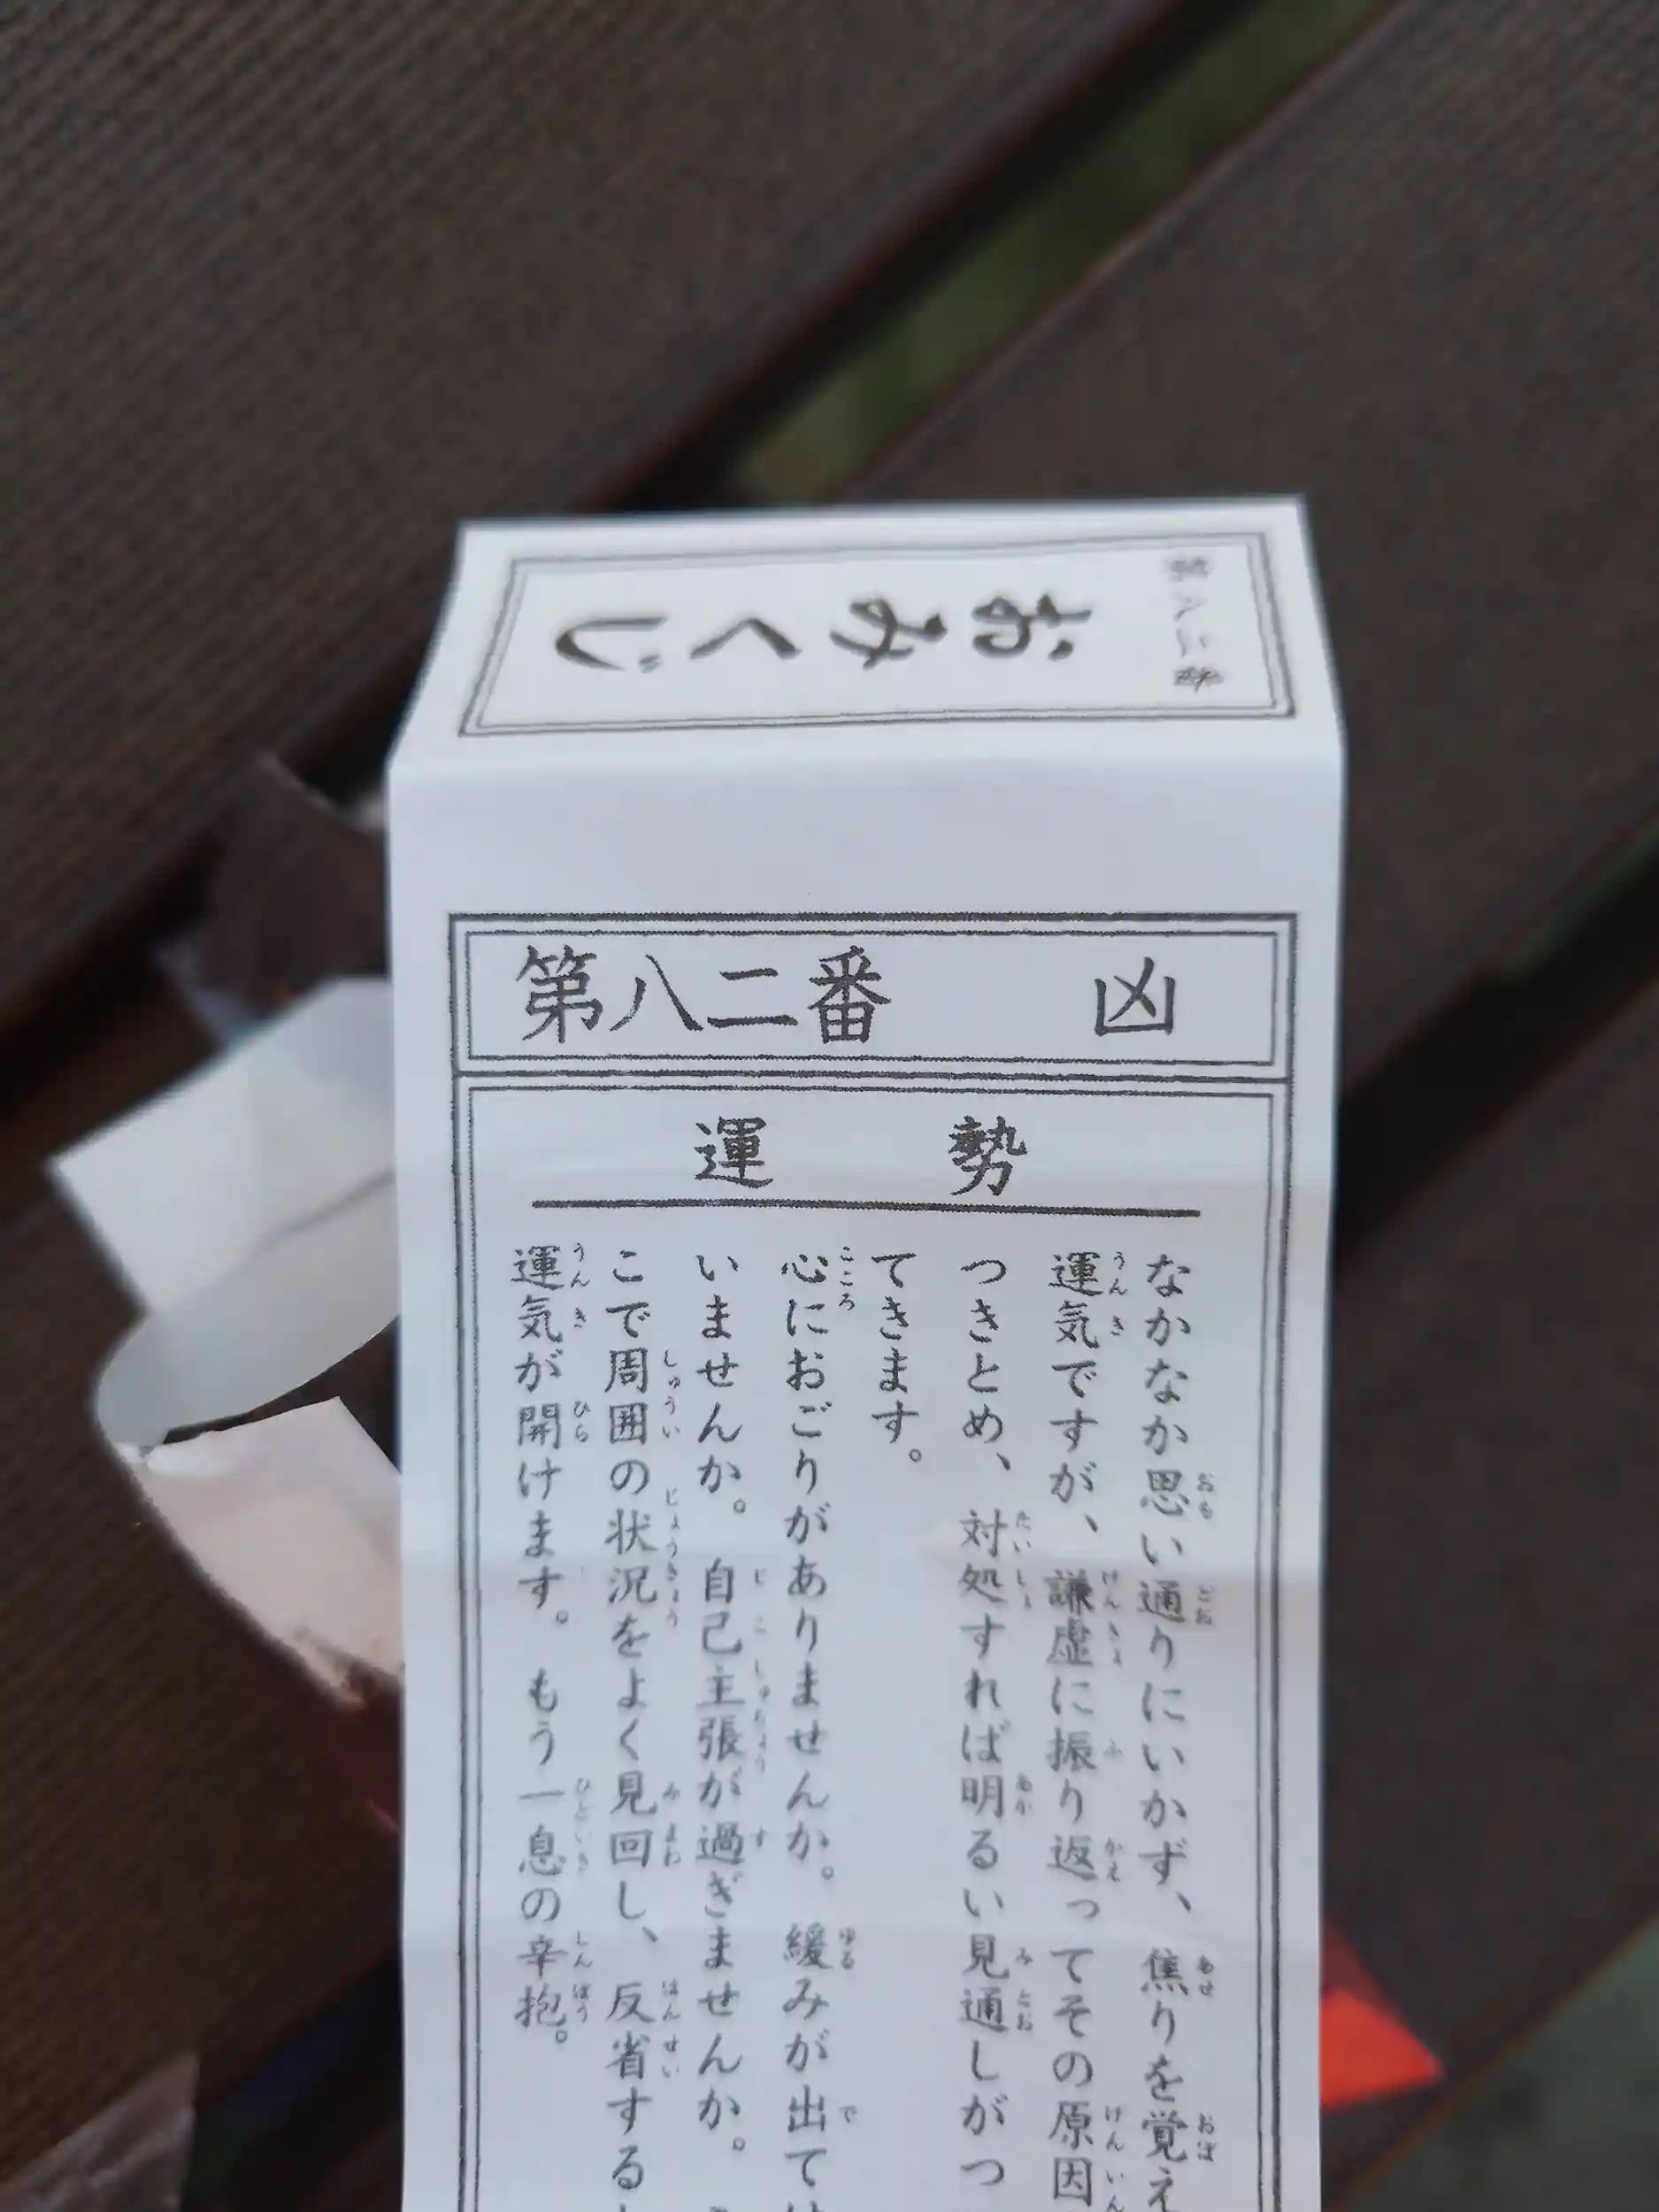 第八二番
おみくじ
第八二番 凶
運勢
なかなか思い通りにいかず、焦りを覚え
運気ですが、謙虚に振り返ってその原因
つきとめ、対処すれば明るい見通しがつ
てきます。
心におごりがありませんか。緩みが出ては
いませんか。自己主張が過ぎませんか。
こで周囲の状況をよく見回し、反省する
運気が開けます。もう一息の辛抱。